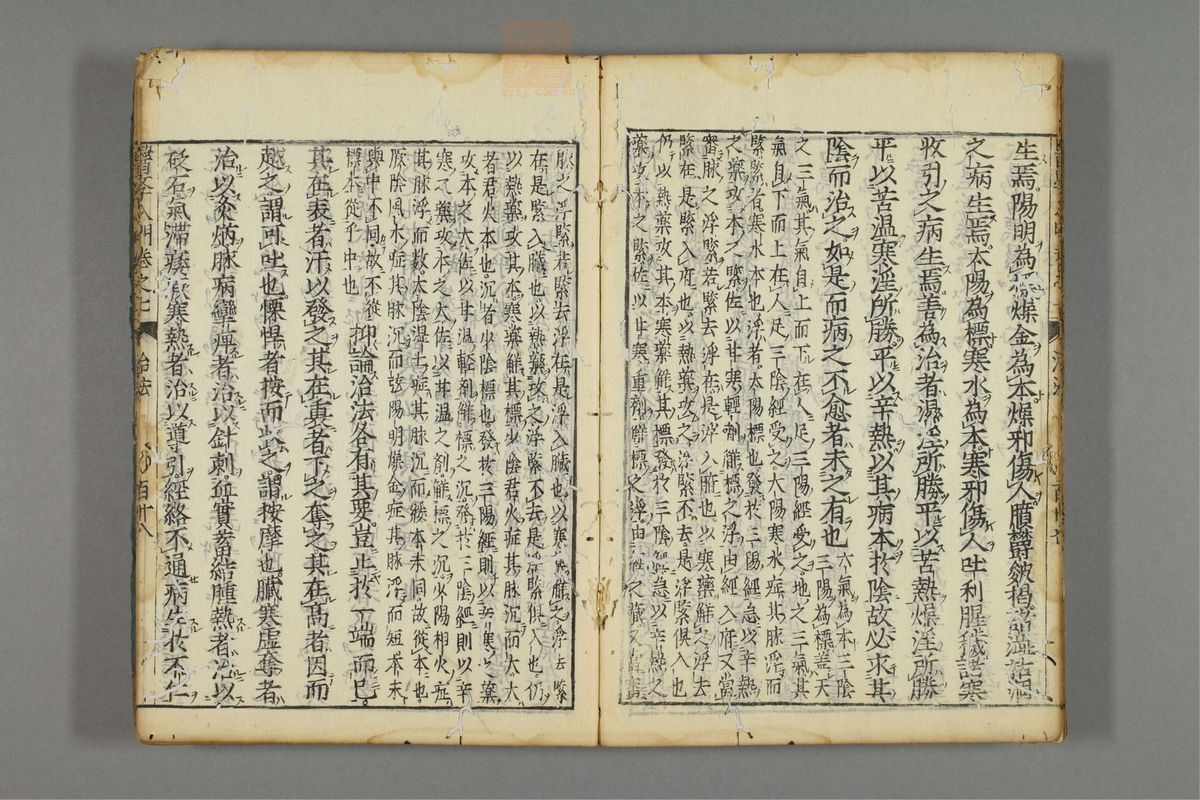 生焉陽明為標燥金為本燥邪傷人臏欝皴揭
之病生焉太陽為標寒水為本寒邪傷人吐利腥穢
收引之病生焉善為治者濕淫所勝平以苦熱燥淫所勝
平以苦溫寒淫所勝平以辛熱以其病本於陰故必求其
陰而治之如是而病之不愈者未之有也六氣為本三陰
三陽為標蓋天
之三氣其氣自上而下在人足三陽經受之地之三氣其
氣自下而上在人足三陰經受之太陽寒水症其脉浮而
緊緊者寒水本也浮者太陽標也發於三陽經急以辛熱
之藥攻本之緊佐以甘寒輕劑觧標之浮由經入府又當
審脉之浮緊若緊去浮在是浮入腑也以寒藥觧之浮去
緊在是緊入府也以熱藥攻之浮緊不去是浮緊俱入也
仍以熱藥攻其本寒藥觧其標發於三陰經急以辛熱之
藥攻本之緊佐以甘寒重劑觧標之浮由經之藏又當審
脉之浮緊若緊去浮在是浮入臟也以寒藥觧之浮去緊
在是緊入臟也以熱藥攻之浮緊不去是浮緊俱入也仍
以熱藥攻其本寒藥觧其標少陰君火症其脉沉而大大
者君火本也沉者少陰標也發於三陽經則以辛寒之藥
攻本之大佐以甘溫輕劑觧標之沉發於三陰經則以辛
寒之藥攻本之大佐以甘溫之劑觧標之沉少陽相火症
其脉浮而數太陰濕土症其脉沉而緩本末同故從本也
厥陰風木症其脉沉而弦陽明燥金症其脉浮而短本末
與中不同故不從
標本從乎中也抑論治法各有其要豈止於一端而已
其在表者汗以發之其在裏者下之奪之其在髙者因而
越之謂可吐也慓悍者按而收之謂按摩也臟寒虛奪者
治以灸焫脉病攣痺者治以針刺血實蓄結腫熱者治以
砭石氣滯痿厥寒熱者治以導引經絡不通病生於不仁
醫學入門卷之七
治法
百廿八